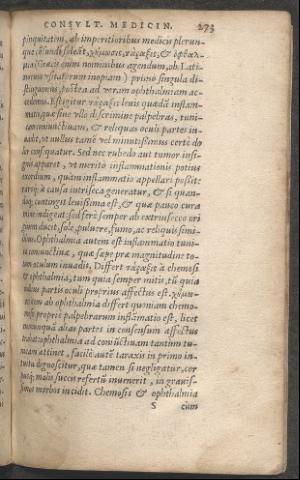 CONSVLT. MEDICIN. 273
pinguitatem, ab imperitioribus medicis plerun-
que confundi soleāt, χήμωσις, τάραξις, & ὀφθαλ-
μία (Graecis enim nominibus agendum, ob Lati-
norum vsitatorum inopiam) primò singula di-
stinguemus, postea ad veram ophthalmiam ac-
cedemus. Est igitur τάραξις leuis quædā inflam-
matio, quæ siue vllo discrimine palpebras, tuni-
cam coniunctiuam, & reliquas oculi partes in-
uadit, vt nullus tamē vel minutissimus certè do
lor consequatur. Sed nec rubedo aut tumor insi-
gnis apparet, vt meritò inflammationis potius
exordium, quàm inflammatio appellari possit:
rarò à causa intrinseca generatur, & si quan-
doq; contingit leuissima est, & quæ pauco cura
mine indigeat: sed ferè semper ab extrinseco ori
ginem ducit, sole, puluere, fumo, ac reliquis simi-
libus. Ophthalmia autem est inflammatio tuni-
cæ coniunctiuæ, quæ sæpe præ magnitudine to-
tum oculum inuadit. Differt τάραξις à chemosi
& ophthalmia, tum quia semper mitis, tū quia
nullius partis oculi proprius affectus est. χήμω-
σις autem ab ophthalmia differt quoniam chemo-
sis propriè palpebrarum inflāmatio est, licet
nonnunquā alias partes in consensum affectus
trahat: ophthalmia ad coniūctiuam tantùm tu-
nicam attinet, facilè autē taraxis in primo in-
tuitu dignoscitur, quæ tamen si negligatur, cor
pusq; malis succis refertū inuenerit, in grauis-
simos morbos incidit. Chemosis & ophthalmia
S cùm